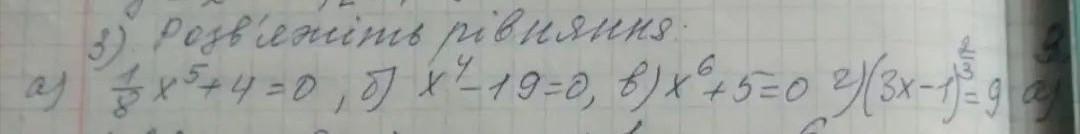 3) Розв'яжіть рівняння:
а) 1/8 x⁵+4=0, б) x⁴-19=0, в) x⁶+5=0 г) (3x-1)^(2/3)=9 а)